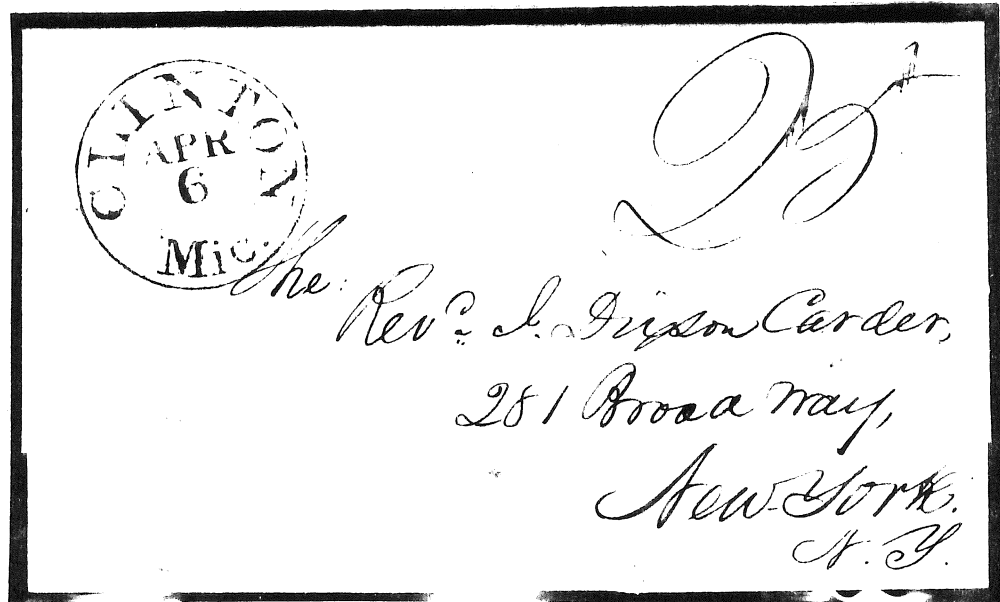 CLINTON
APR
6
Mic.
25
The
Revd. J. Dixson Carder,
281 Broadway,
New-York.
N. Y.